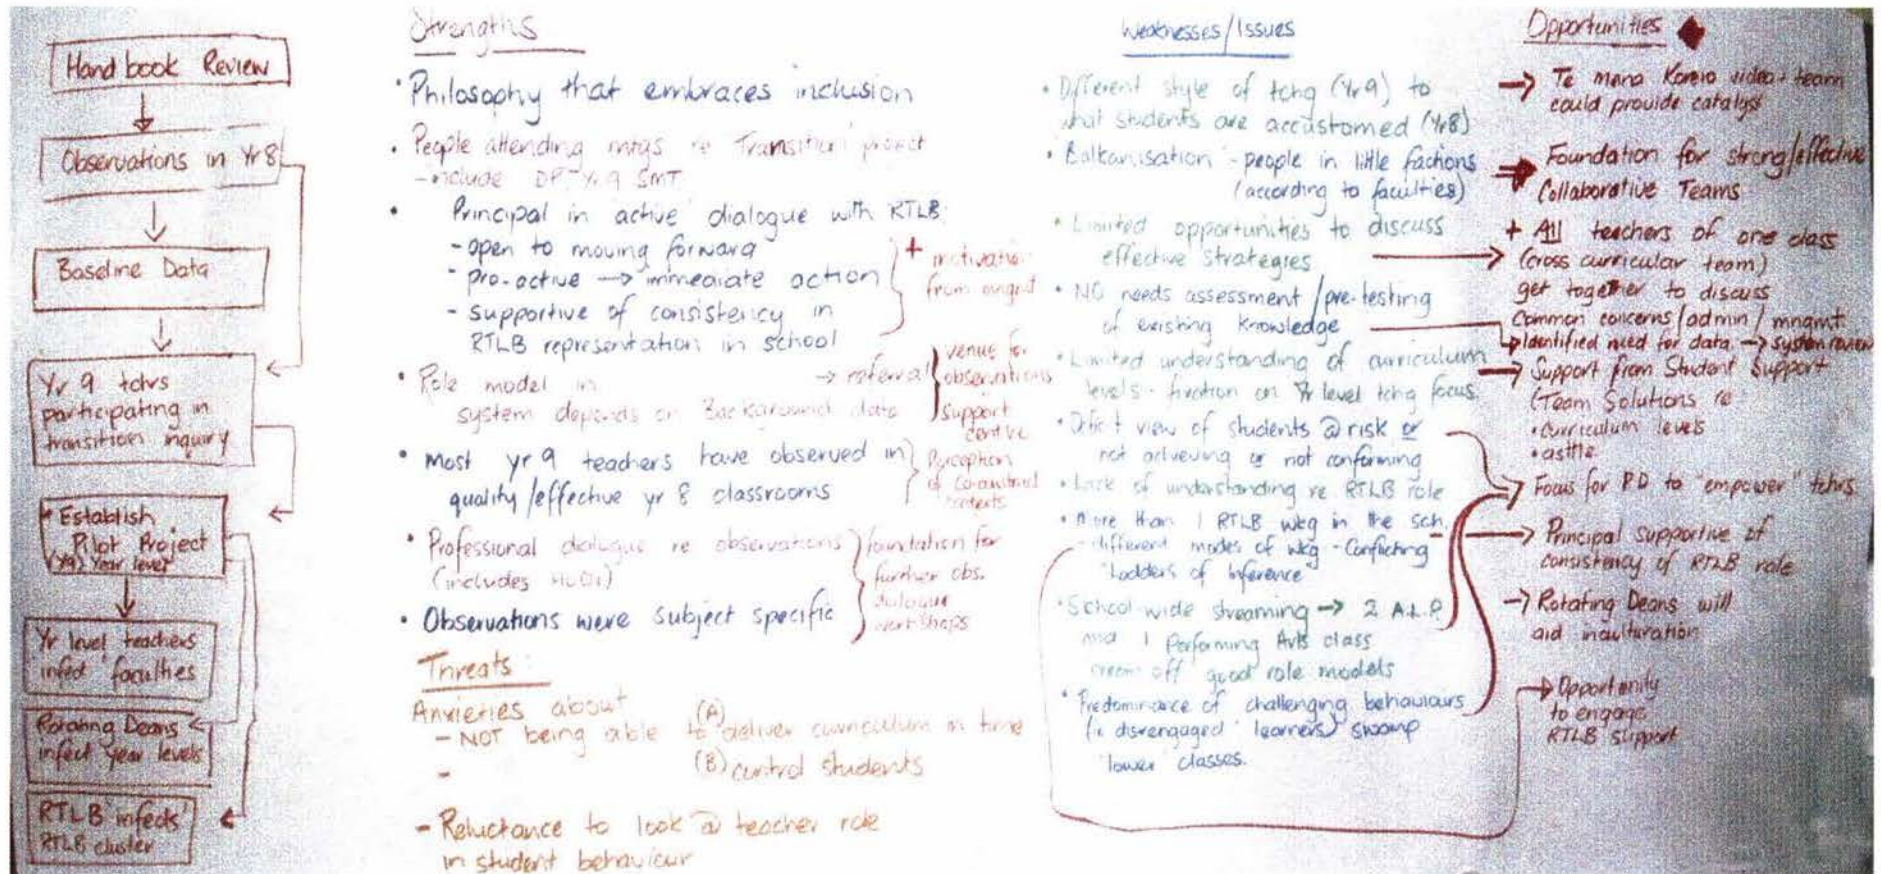 Handbook Review
Observations in Yr 8
Baseline Data
Yr 9 tchrs
participating in
transition inquiry
Establish
Pilot Project
(Y9) Year level
Yr level teachers
'infect' faculties
Rotating Deans
infect year levels
RTLB 'infects'
RTLB cluster
Strengths
• Philosophy that embraces inclusion
• People attending mtgs re Transition project
- include DP, Yr 9 SMT
• Principal in 'active' dialogue with RTLB:
- open to moving forward
- pro-active → immediate action
- supportive of consistency in
RTLB representation in school
+ motivation
from mngmt
• Role model in → referral
system depends on Background data
venue for
observations
support
centre
• Most yr 9 teachers have observed in
quality/effective yr 8 classrooms
Perception
of co-construct
contexts
• Professional dialogue re observations
(includes HODs)
• Observations were subject specific
foundation for
further obs.
dialogue
workshops
Threats:
Anxieties about
- NOT being able to (A) deliver curriculum in time
-
(B) control students
- Reluctance to look @ teacher role
in student behaviour
Weaknesses/Issues
• Different style of tchg (Yr 9) to
what students are accustomed (Yr 8)
• Balkanisation - people in little factions
(according to faculties)
• Limited opportunities to discuss
effective strategies
• NO needs assessment/pre-testing
of existing knowledge
• Limited understanding of curriculum
levels - fixation on Yr level tchg focus.
• Deficit view of students @ risk or
not achieving or not conforming
• Lack of understanding re RTLB role
• More than 1 RTLB wkg in the sch.
- different modes of wkg - Conflicting
'Ladders of Inference'
• School-wide streaming → 2 A.L.P.
and 1 Performing Arts class
cream off good role models
• Predominance of challenging behaviours
(ie disengaged learners) swamp
'lower' classes.
Opportunities
→ Te mana Korero video + team
could provide catalyst
→ Foundation for strong/effective
Collaborative Teams
+ All teachers of one class
(cross curricular team)
get together to discuss
Common concerns/admin/mngmt
→ Identified need for data → system review
→ Support from Student Support
(Team Solutions re
• curriculum levels
• asttle
→ Focus for P.D to "empower" tchrs
→ Principal supportive of
consistency of RTLB role
→ Rotating Deans will
aid inculturation
→ Opportunity
to engage
RTLB support